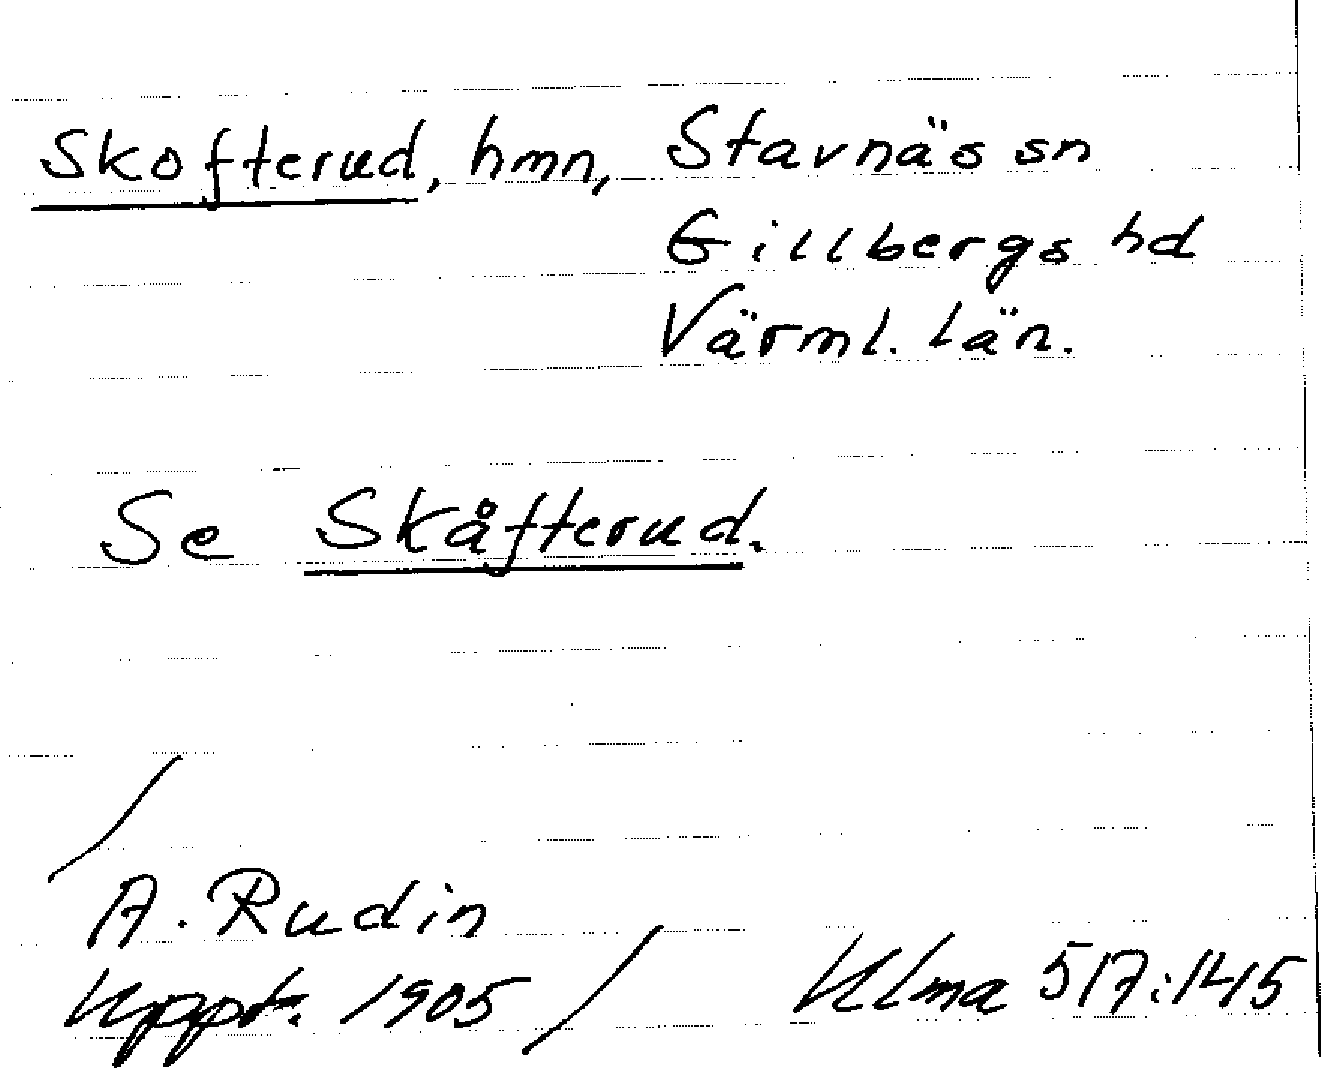 Skofterud, hmn, Stavnäs sn
Gillbergs hd
Värml. län.
Se Skåfterud.
A. Rudin
Uppt. 1905 / Ulma 517:145